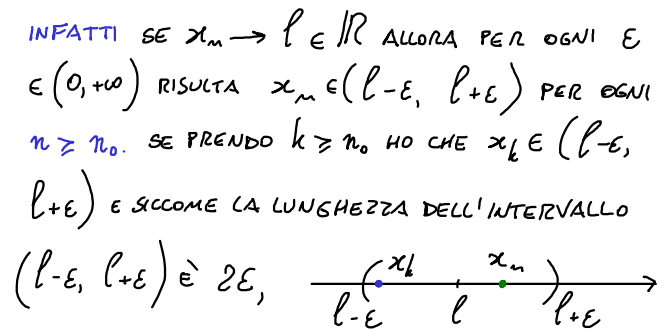 INFATTI SE xₙ → l ∈ ℝ ALLORA PER OGNI ε
∈ (0,+∞) RISULTA xₙ ∈ (l-ε, l+ε) PER OGNI
n ≥ n₀. SE PRENDO k ≥ n₀ HO CHE xₖ ∈ (l-ε,
l+ε) E SICCOME LA LUNGHEZZA DELL'INTERVALLO
(l-ε, l+ε) È 2ε,
( xₖ xₙ )
l-ε l l+ε